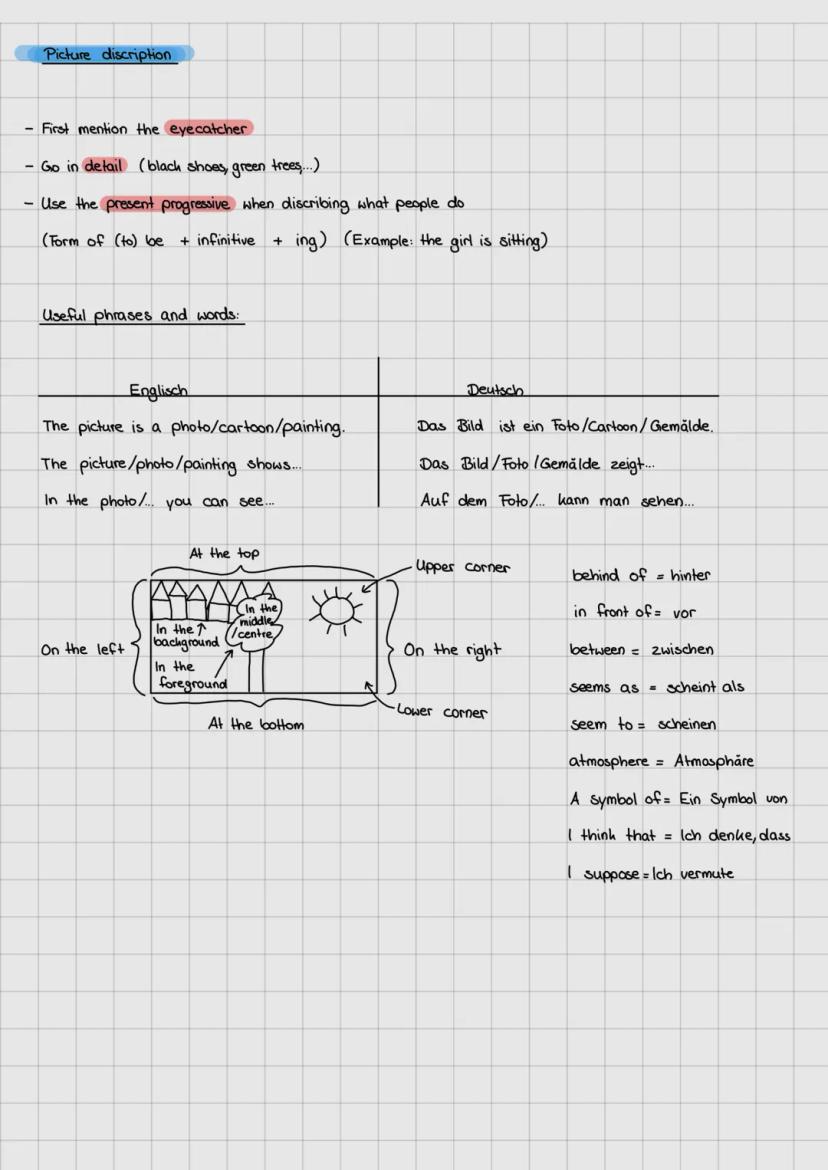 Picture discription
- First mention the eyecatcher
- Go in detail (black shoes, green trees,...)
- Use the present progressive when discribing what people do
(Form of (to) be + infinitive + ing) (Example: the girl is sitting)
Useful phrases and words:
Englisch
Deutsch
The picture is a photo/cartoon/painting.
Das Bild ist ein Foto/Cartoon/Gemälde.
The picture/photo/painting shows...
Das Bild/Foto/Gemälde zeigt...
In the photo/... you can see...
Auf dem Foto/... kann man sehen...
At the top
Upper corner
In the
middle
/centre
In the
background
On the left
On the right
In the
foreground
Lower corner
At the bottom
behind of = hinter
in front of = vor
between = zwischen
seems as = scheint als
seem to = scheinen
atmosphere = Atmosphäre
A symbol of = Ein Symbol von
I think that = Ich denke, dass
I suppose = Ich vermute